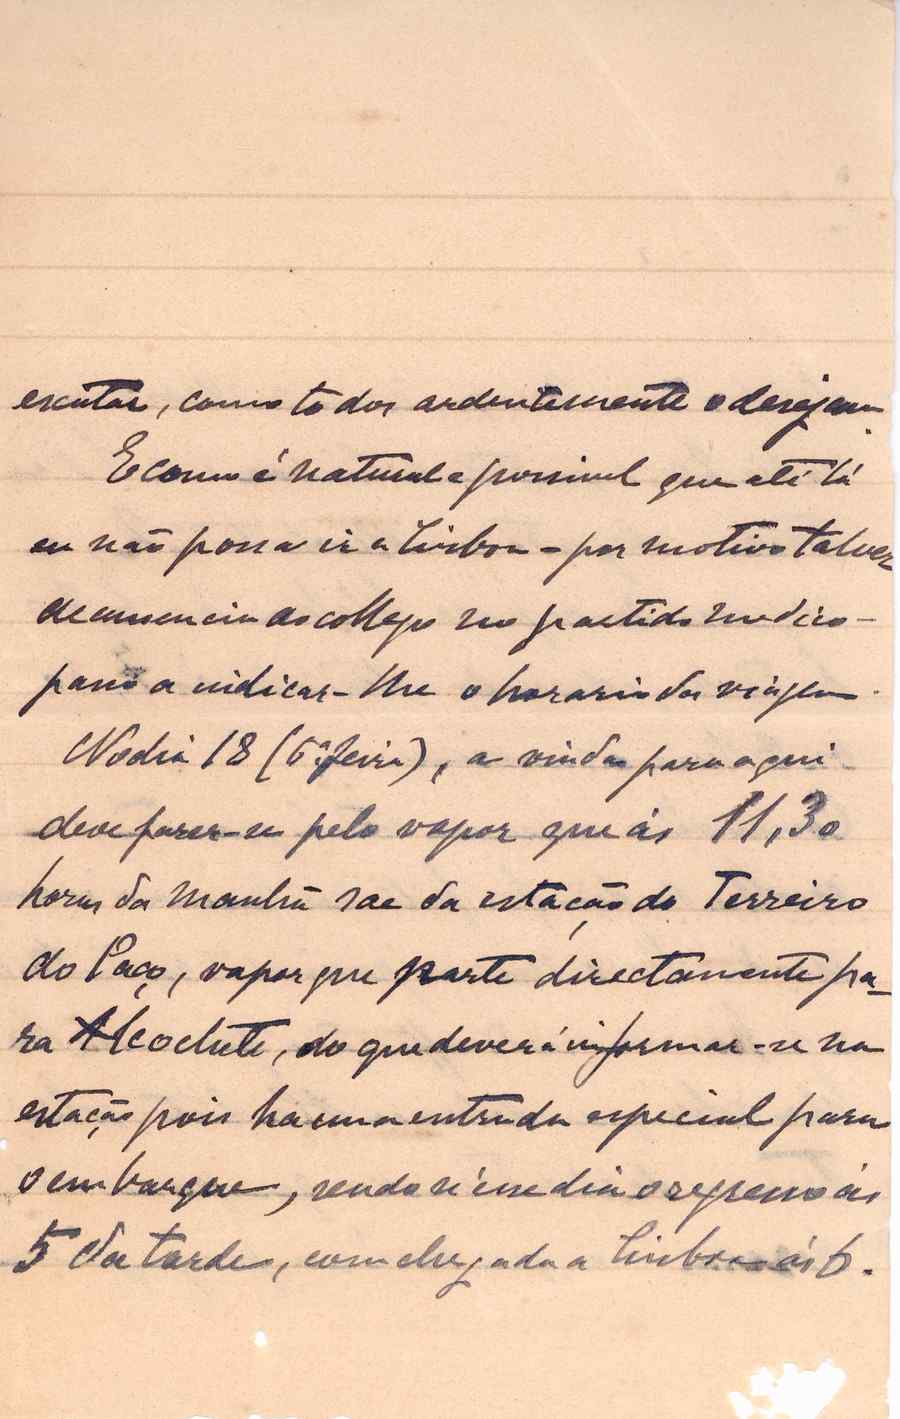 escutar, como todos ardentemente o desejam.
E como é natural e possivel que até lá
eu não possa ir a Lisboa - por motivo talvez
de ausencia do collega no partido medico -
passo a indicar-lhe o horario da viagem.
No dia 18 (6ª feira), a vinda para aqui
deve fazer-se pelo vapor que ás 11,30
horas da manhã sae da estação do Terreiro
do Paço, vapor que parte directamente pa-
ra Alcochete, do que deverá informar-se na
estação pois ha uma entrada especial para
o embarque, sendo n'esse dia o regresso ás
5 da tarde, com chegada a Lisboa ás 6.